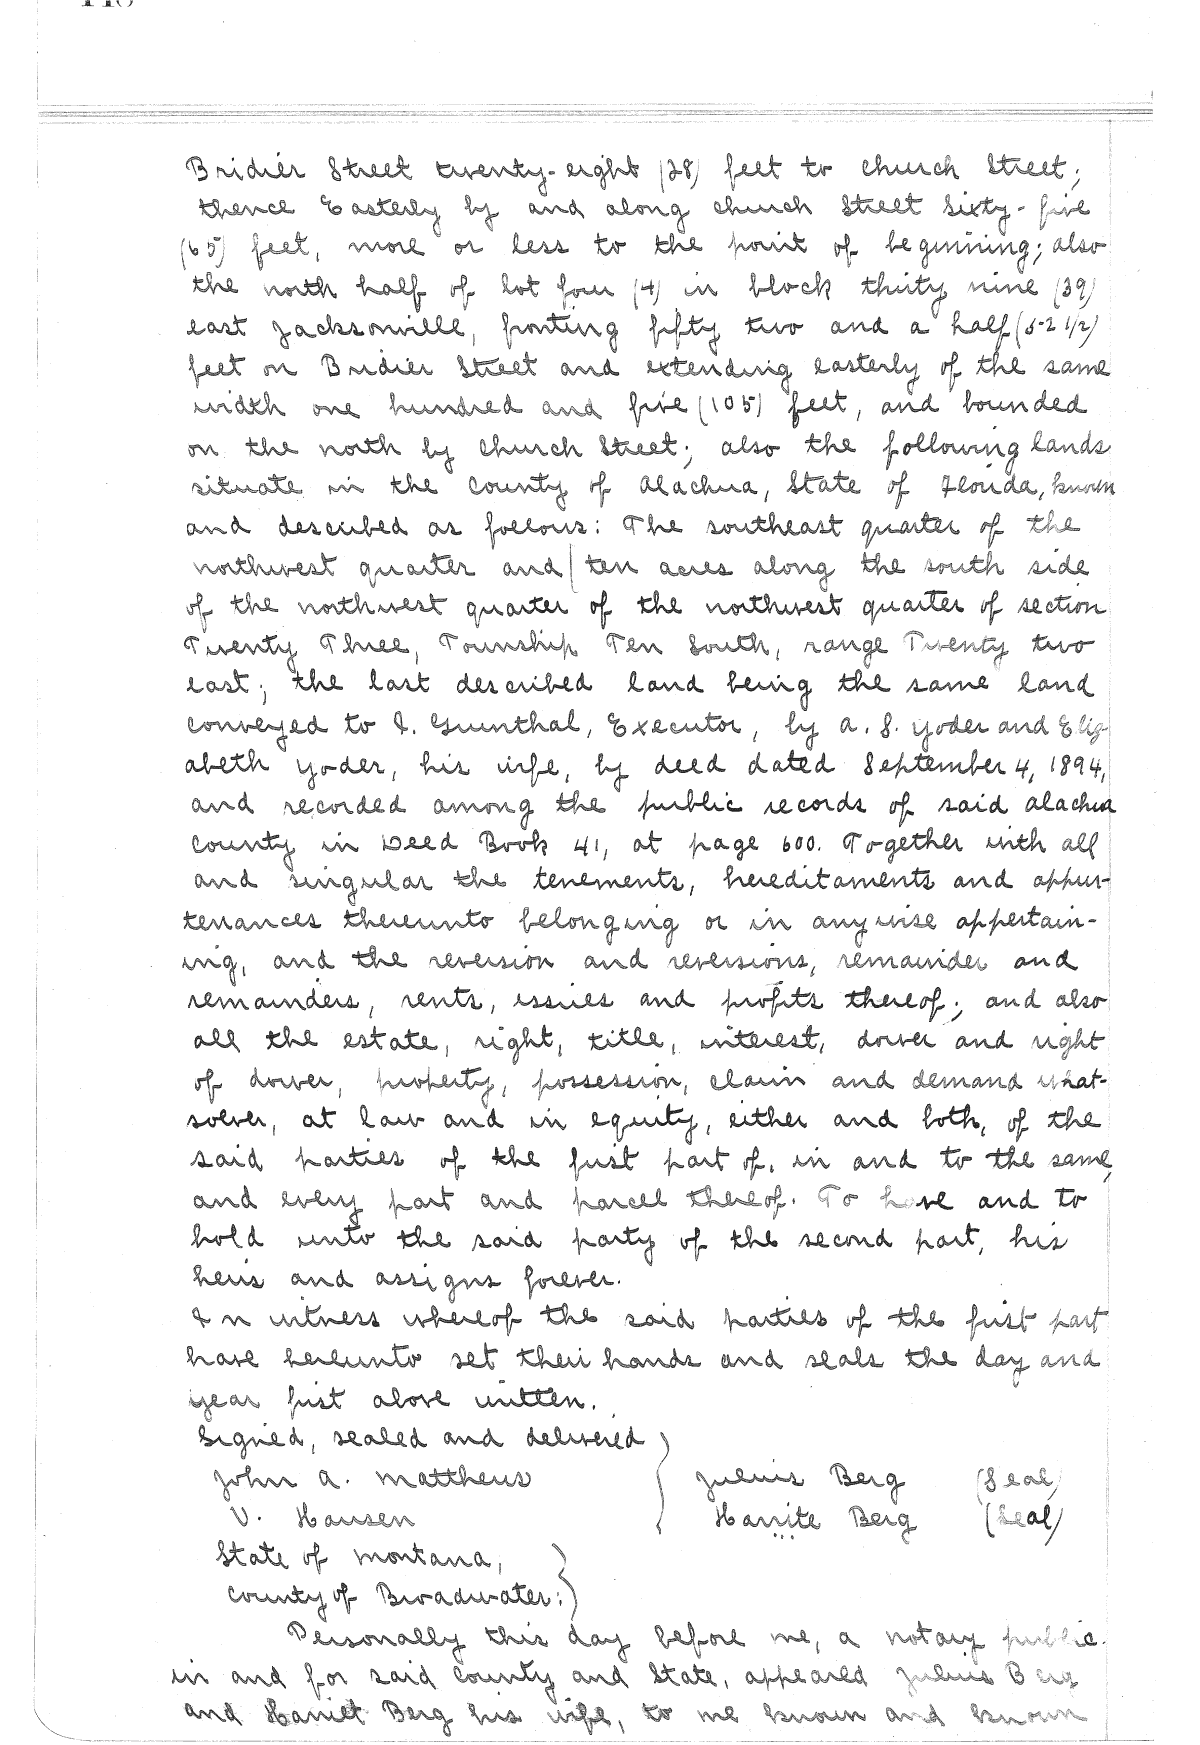 Bridier Street twenty-eight (28) feet to church Street;
thence Easterly by and along church Street Sixty-five
(65) feet, more or less to the point of beginning; also
the north half of lot four (4) in block thirty nine (39)
east Jacksonville, fronting fifty two and a half (52 1/2)
feet on Bridier Street and extending easterly of the same
width one hundred and five (105) feet, and bounded
on the north by Church Street; also the following lands
situate in the County of Alachua, State of Florida, known
and described as follows: The southeast quarter of the
northwest quarter and ten acres along the south side
of the northwest quarter of the northwest quarter of section
Twenty Three, Township Ten South, range Twenty two
east; the last described land being the same land
conveyed to I. Grunthal, Executor, by A. S. Yoder and Eliz-
abeth Yoder, his wife, by deed dated September 4, 1894,
and recorded among the public records of said Alachua
County in Deed Book 41, at page 600. Together with all
and singular the tenements, hereditaments and appur-
tenances thereunto belonging or in anywise appertain-
ing, and the reversion and reversions, remainder and
remainders, rents, issues and profits thereof; and also
all the estate, right, title, interest, dower and right
of dower, property, possession, claim and demand what-
soever, at law and in equity, either and both, of the
said parties of the first part of, in and to the same,
and every part and parcel thereof. To have and to
hold unto the said party of the second part, his
heirs and assigns forever.
In witness whereof the said parties of the first part
have hereunto set their hands and seals the day and
year first above written.
Signed, sealed and delivered
John A. Matthews Julius Berg (Seal)
V. Hansen Harrite Berg (Seal)
State of Montana,
County of Broadwater:
Personally this day before me, a notary public
in and for said County and State, appeared Julius Berg
and Harriet Berg his wife, to me known and known